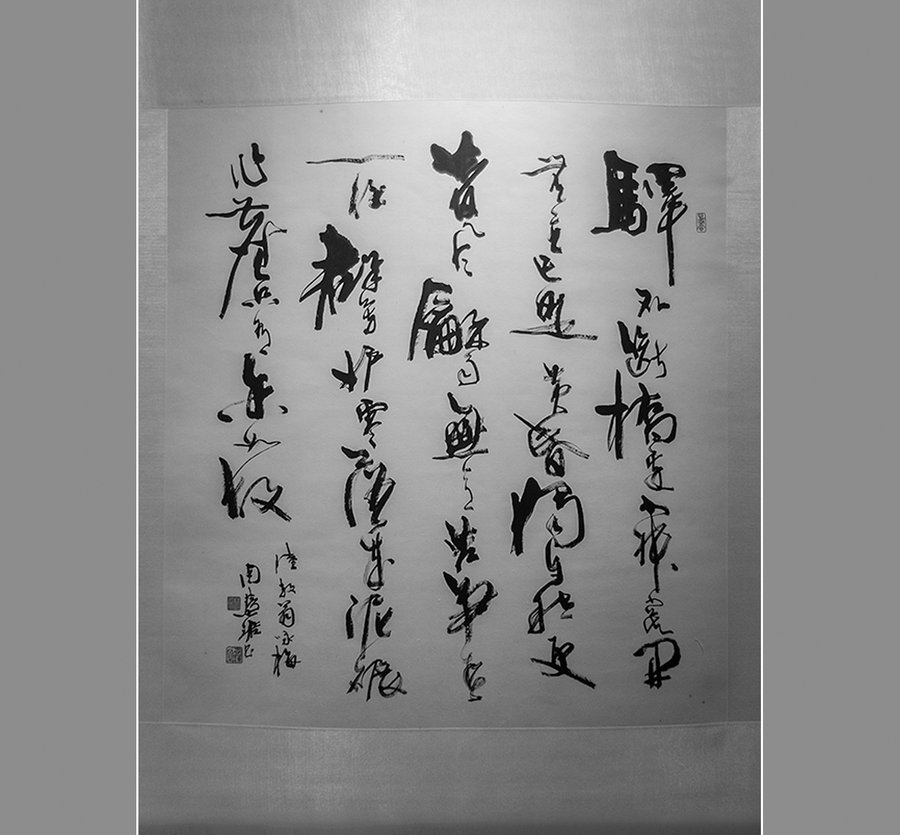 驛外斷橋邊寂寞開
無主已是黃昏獨自愁更
著風龢雨無意苦爭春
一任群芳妒零落成泥碾
作塵只有香如故
陸放翁咏梅
周慧珺